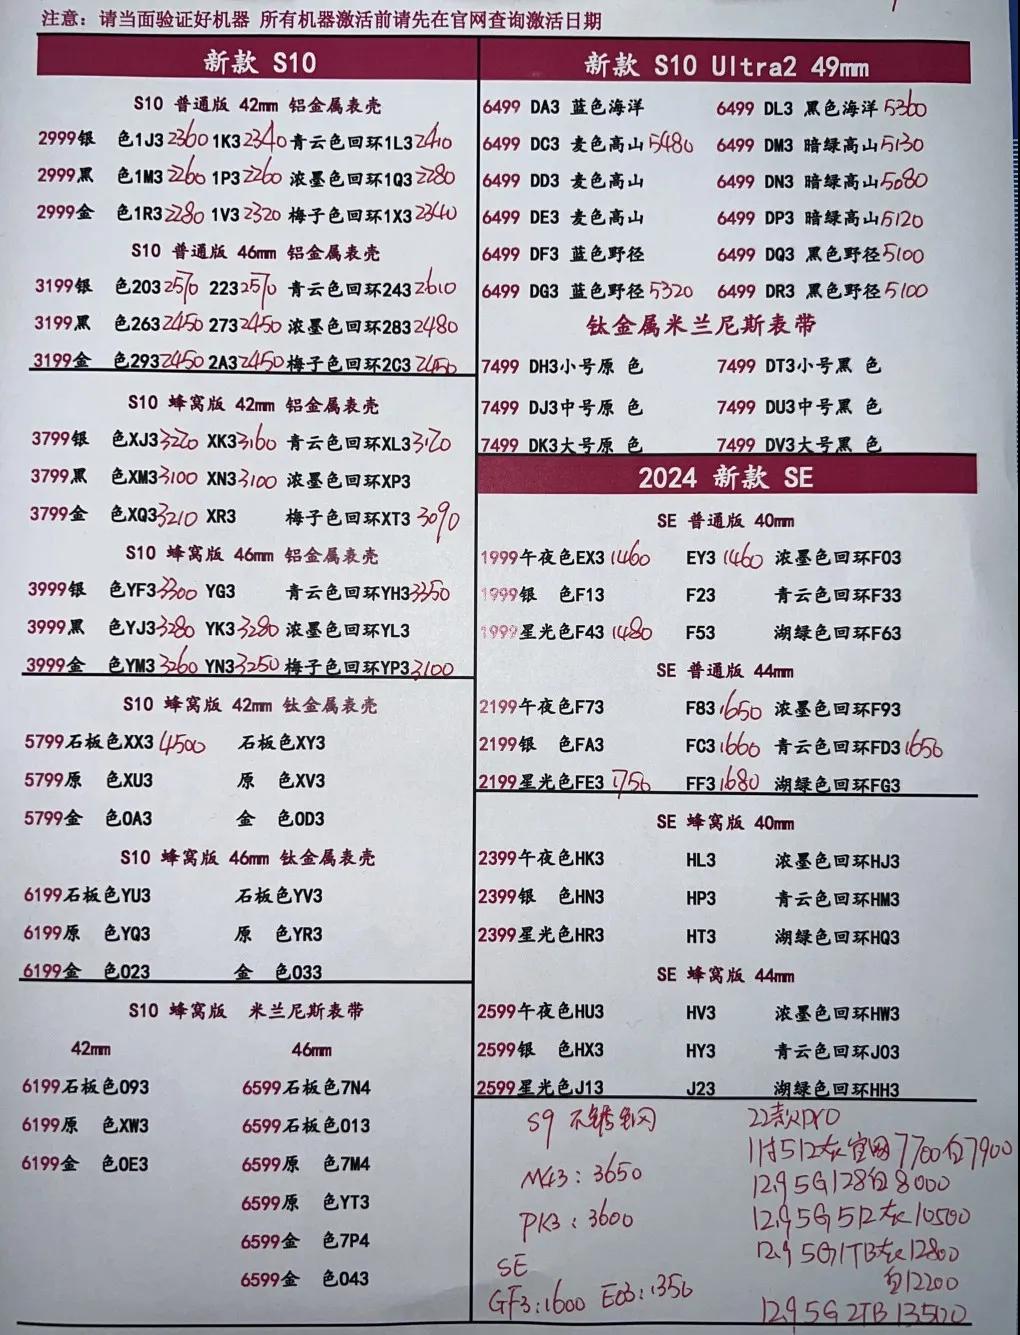 注意：请当面验证好机器 所有机器激活前请先在官网查询激活日期
新款 S10
S10 普通版 42mm 铝金属表壳
2999银 色1J3 2360 1K3 2340 青云色回环1L3 2410
2999黑 色1M3 2260 1P3 2260 浓墨色回环1Q3 2280
2999金 色1R3 2280 1V3 2320 梅子色回环1X3 2340
S10 普通版 46mm 铝金属表壳
3199银 色203 2570 223 2570 青云色回环243 2610
3199黑 色263 2450 273 2450 浓墨色回环283 2480
3199金 色293 2450 2A3 2450 梅子色回环2C3 2450
S10 蜂窝版 42mm 铝金属表壳
3799银 色XJ3 3220 XK3 3160 青云色回环XL3 3120
3799黑 色XM3 3100 XN3 3100 浓墨色回环XP3
3799金 色XQ3 3210 XR3 梅子色回环XT3 3090
S10 蜂窝版 46mm 铝金属表壳
3999银 色YF3 3300 YG3 青云色回环YH3 3350
3999黑 色YJ3 3280 YK3 3280 浓墨色回环YL3
3999金 色YM3 3260 YN3 3250 梅子色回环YP3 3100
S10 蜂窝版 42mm 钛金属表壳
5799石板色XX3 4500 石板色XY3
5799原 色XU3 原 色XV3
5799金 色0A3 金 色0D3
S10 蜂窝版 46mm 钛金属表壳
6199石板色YU3 石板色YV3
6199原 色YQ3 原 色YR3
6199金 色023 金 色033
S10 蜂窝版 米兰尼斯表带
42mm 46mm
6199石板色093 6599石板色7N4
6199原 色XW3 6599石板色013
6199金 色0E3 6599原 色7M4
6599原 色YT3
6599金 色7P4
6599金 色043
新款 S10 Ultra2 49mm
6499 DA3 蓝色海洋 6499 DL3 黑色海洋 5360
6499 DC3 麦色高山 5480 6499 DM3 暗绿高山 5130
6499 DD3 麦色高山 6499 DN3 暗绿高山 5080
6499 DE3 麦色高山 6499 DP3 暗绿高山 5120
6499 DF3 蓝色野径 6499 DQ3 黑色野径 5100
6499 DG3 蓝色野径 5320 6499 DR3 黑色野径 5100
钛金属米兰尼斯表带
7499 DH3小号原 色 7499 DT3小号黑 色
7499 DJ3中号原 色 7499 DU3中号黑 色
7499 DK3大号原 色 7499 DV3大号黑 色
2024 新款 SE
SE 普通版 40mm
1999午夜色EX3 1460 EY3 1460 浓墨色回环F03
1999银 色F13 F23 青云色回环F33
1999星光色F43 1480 F53 湖绿色回环F63
SE 普通版 44mm
2199午夜色F73 F83 1650 浓墨色回环F93
2199银 色FA3 FC3 1660 青云色回环FD3 1650
2199星光色FE3 1750 FF3 1680 湖绿色回环FG3
SE 蜂窝版 40mm
2399午夜色HK3 HL3 浓墨色回环HJ3
2399银 色HN3 HP3 青云色回环HM3
2399星光色HR3 HT3 湖绿色回环HQ3
SE 蜂窝版 44mm
2599午夜色HU3 HV3 浓墨色回环HW3
2599银 色HX3 HY3 青云色回环J03
2599星光色J13 J23 湖绿色回环HH3
S9 不锈钢
M43：3650
PK3：3600
SE
GF3：1600 E03：1350
22款pro
11寸512灰官网7700白7900
12.9 5G 128白8000
12.9 5G 512灰10500
12.9 5G 1TB灰12800
白12200
12.9 5G 2TB 13500